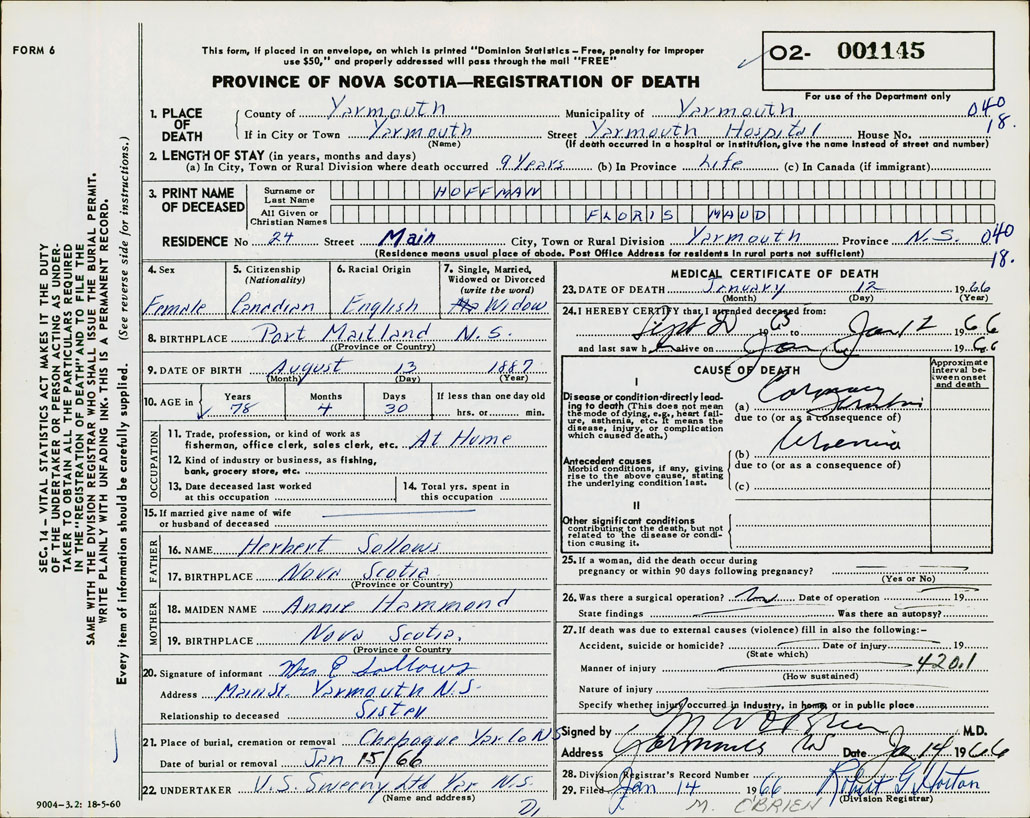 FORM 6
This form, if placed in an envelope, on which is printed "Dominion Statistics – Free, penalty for improper
use $50," and properly addressed will pass through the mail "FREE"
PROVINCE OF NOVA SCOTIA—REGISTRATION OF DEATH
O2- 001145
For use of the Department only
1. PLACE OF DEATH
County of Yarmouth Municipality of Yarmouth 040
If in City or Town Yarmouth Street Yarmouth Hospital House No. 18.
(Name) (If death occurred in a hospital or institution, give the name instead of street and number)
2. LENGTH OF STAY (in years, months and days)
(a) In City, Town or Rural Division where death occurred 9 Years (b) In Province Life (c) In Canada (if immigrant)
3. PRINT NAME OF DECEASED
Surname or Last Name HOFFMAN
All Given or Christian Names FLORIS MAUD
RESIDENCE No 24 Street Main City, Town or Rural Division Yarmouth Province N.S. 040
(Residence means usual place of abode. Post Office Address for residents in rural parts not sufficient) 18.
4. Sex Female
5. Citizenship (Nationality) Canadian
6. Racial Origin English
7. Single, Married, Widowed or Divorced (write the word) Widow
8. BIRTHPLACE Port Maitland N.S.
(Province or Country)
9. DATE OF BIRTH August 13 1887
(Month) (Day) (Year)
10. AGE in Years Months Days If less than one day old
78 4 30 hrs. or min.
OCCUPATION
11. Trade, profession, or kind of work as
fisherman, office clerk, sales clerk, etc. At Home
12. Kind of industry or business, as fishing,
bank, grocery store, etc.
13. Date deceased last worked
at this occupation
14. Total yrs. spent in
this occupation
15. If married give name of wife
or husband of deceased
FATHER
16. NAME Herbert Sollows
17. BIRTHPLACE Nova Scotia
(Province or Country)
MOTHER
18. MAIDEN NAME Annie Hammond
19. BIRTHPLACE Nova Scotia.
(Province or Country)
20. Signature of informant Mrs E Sollows
Address Main St. Yarmouth N.S.
Relationship to deceased Sister
21. Place of burial, cremation or removal Chebogue Yar Co N.S
Date of burial or removal Jan 15/66
22. UNDERTAKER V.S. Sweeny Ltd Yar N.S.
(Name and address)
MEDICAL CERTIFICATE OF DEATH
23. DATE OF DEATH January 12 1966
(Month) (Day) (Year)
24. I HEREBY CERTIFY that I attended deceased from:
Sept 2 1965 to Jan 12 1966
and last saw h alive on Jan 1966
CAUSE OF DEATH
Approximate interval between onset and death
I
Disease or condition directly leading to death (This does not mean
the mode of dying, e.g., heart failure, asthenia, etc. It means the
disease, injury, or complication
which caused death.)
(a)
due to (or as a consequence of)
Antecedent causes
Morbid conditions, if any, giving
rise to the above cause, stating
the underlying condition last.
(b)
due to (or as a consequence of)
(c)
II
Other significant conditions
contributing to the death, but not
related to the disease or condition causing it.
25. If a woman, did the death occur during
pregnancy or within 90 days following pregnancy?
(Yes or No)
26. Was there a surgical operation? No Date of operation 19
State findings Was there an autopsy?
27. If death was due to external causes (violence) fill in also the following:–
Accident, suicide or homicide? Date of injury 19
(State which)
Manner of injury 420.1
(How sustained)
Nature of injury
Specify whether injury occurred in industry, in home, or in public place
Signed by M W O'Brien M.D.
Address Yarmouth NS Date Jan 14 1966
28. Division Registrar's Record Number
29. Filed Jan 14 1966 Robert G. Horton
(Division Registrar)
M. O'BRIEN
SEC. 14 – VITAL STATISTICS ACT MAKES IT THE DUTY
OF THE UNDERTAKER OR PERSON ACTING AS UNDER-
TAKER TO OBTAIN ALL THE PARTICULARS REQUIRED
IN THE "REGISTRATION OF DEATH" AND TO FILE THE
SAME WITH THE DIVISION REGISTRAR WHO SHALL ISSUE THE BURIAL PERMIT.
WRITE PLAINLY WITH UNFADING INK. THIS IS A PERMANENT RECORD.
Every item of information should be carefully supplied. (See reverse side for instructions.)
9004–3.2: 18-5-60